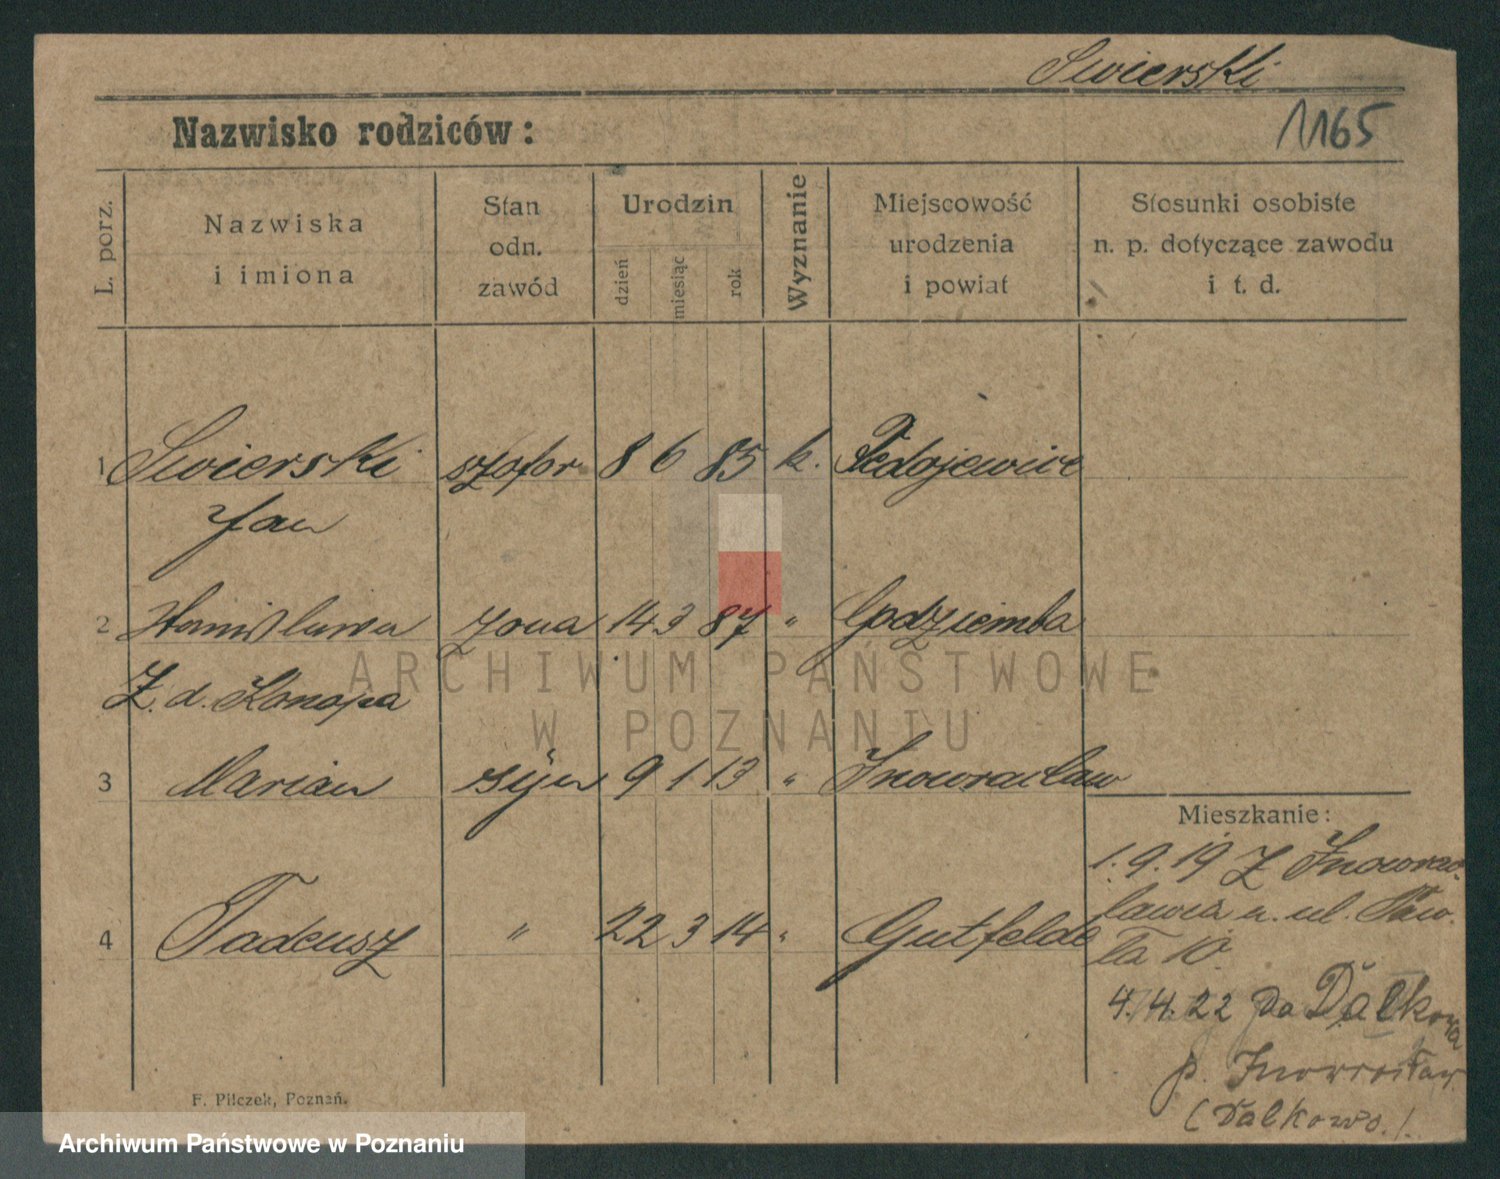 Swierski
Nazwisko rodziców:
1165
L. porz.
Nazwiska
i imiona
Stan
odn.
zawód
Urodzin
dzień
miesiąc
rok
Wyznanie
Miejscowość
urodzenia
i powiat
Stosunki osobiste
n. p. dotyczące zawodu
i t. d.
1 Swierski szofor 8 6 85 k.
Jan
2 Stanisława żona 14 3 87 " Godziemba
Z. d. Konopa
3 Marian syn 9 1 13 " Inowracław
4 Tadeusz " 22 3 14 " Gutfelde
Mieszkanie:
1. 9. 19 z Inowrac-
ławia n. ul.
10
4. 4. 22 Do Dalkowa
p. Inowrocław
(Dalkowo.)
F. Pilczek, Poznań.
ARCHIWUM PAŃSTWOWE
W POZNANIU
Archiwum Państwowe w Poznaniu